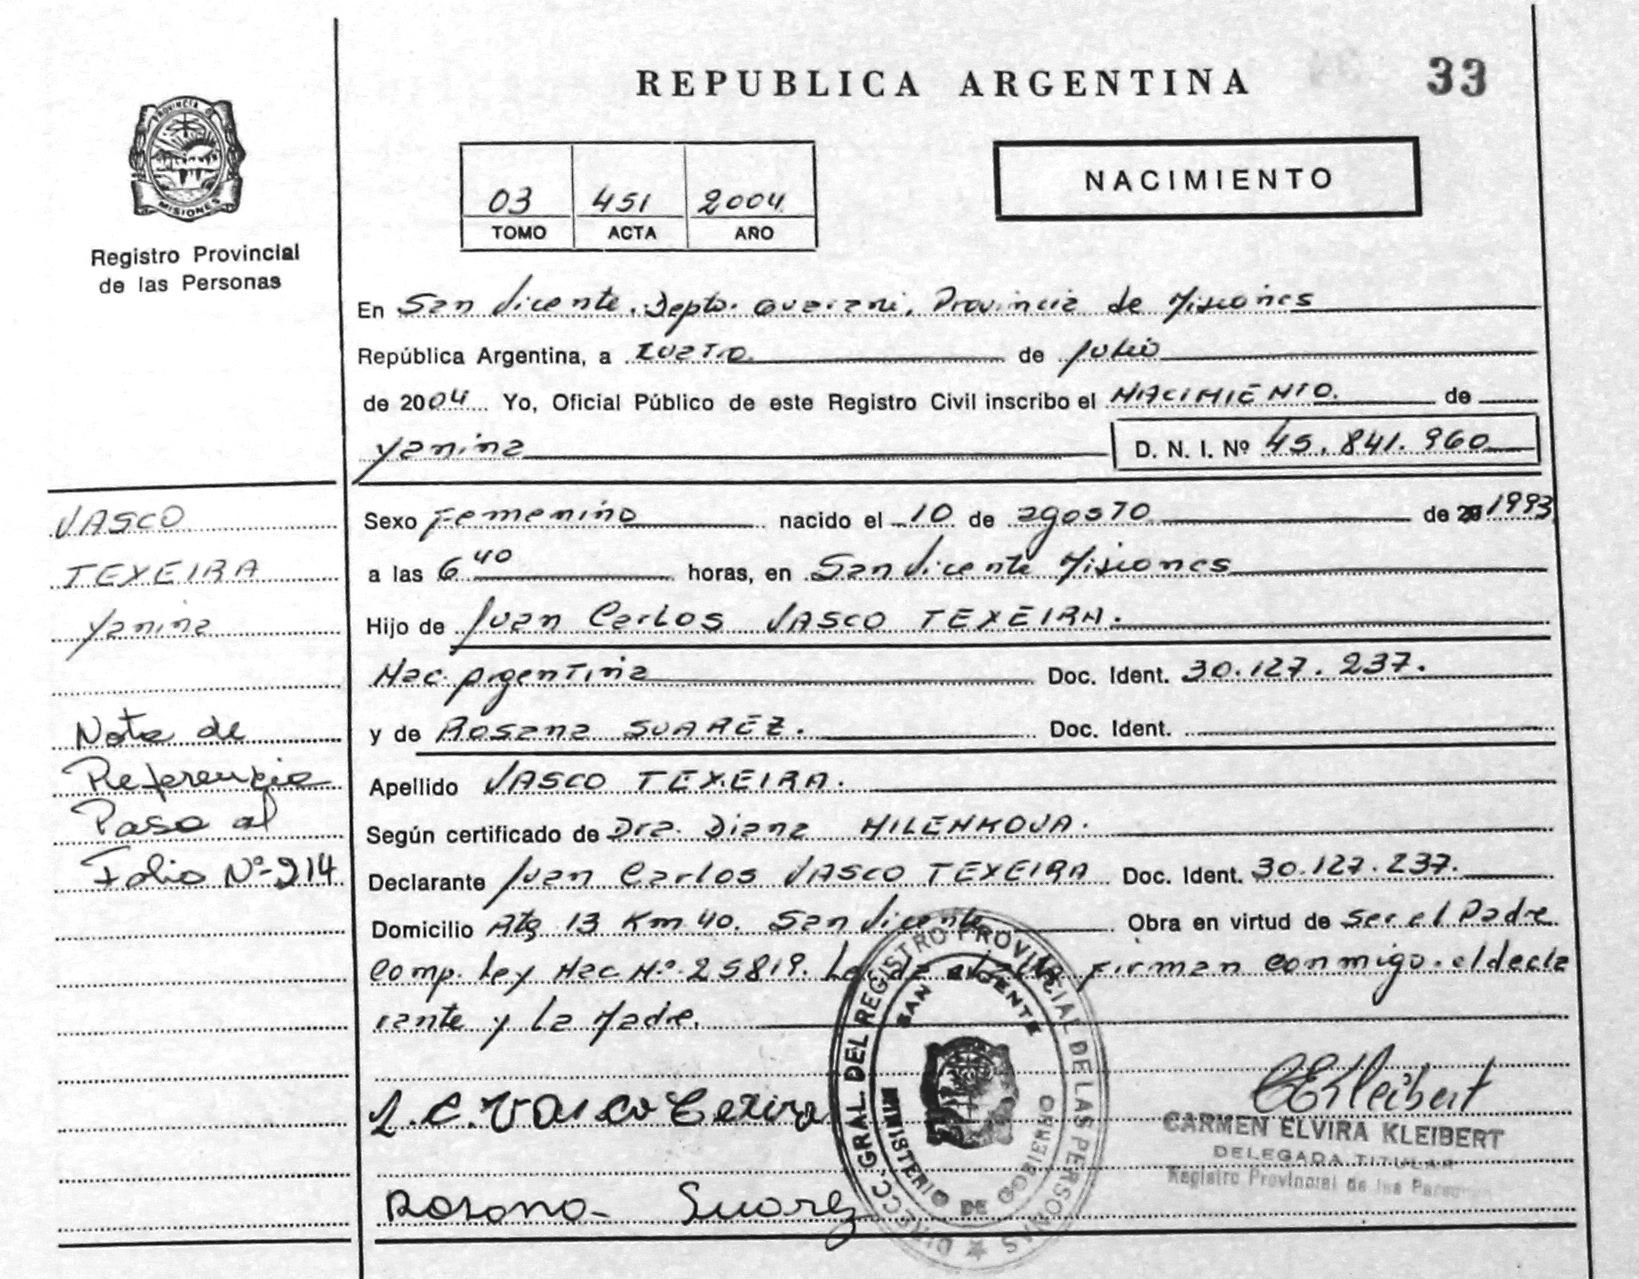 REPUBLICA ARGENTINA
33
PROVINCIA DE
MISIONES
Registro Provincial
de las Personas
03 451 2004
TOMO ACTA AÑO
NACIMIENTO
En San Vicente. Depto. Guarani, Provincia de Misiones
República Argentina, a cuatro de julio
de 2004 Yo, Oficial Público de este Registro Civil inscribo el NACIMIENTO. de
Yanina D. N. I. Nº 45.841.960
VASCO
TEXEIRA
Yanina
Nota de
Referencia
Pasa al
Folio Nº 214
Sexo Femenino nacido el 10 de agosto de 1993
a las 6 40 horas, en San Vicente Misiones
Hijo de Juan Carlos VASCO TEXEIRA.
Nac. Argentina Doc. Ident. 30.127.237.
y de Rosana SUAREZ. Doc. Ident.
Apellido VASCO TEXEIRA.
Según certificado de Dra. Diana MILENKOVA.
Declarante Juan Carlos VASCO TEXEIRA Doc. Ident. 30.127.237.
Domicilio Km 40. San Vicente Obra en virtud de ser el Padre
Comp. Ley Nac. Nº 25819. Leida el acta firman conmigo el decla
rante y la Madre.
J. C. Vasco Texeira
Rosana Suarez
DIRECC. GRAL. DEL REGISTRO PROVINCIAL DE LAS PERSONAS
SAN VICENTE
MINISTERIO DE GOBIERNO
CEKleibert
CARMEN ELVIRA KLEIBERT
DELEGADA TITULAR
Registro Provincial de las Personas